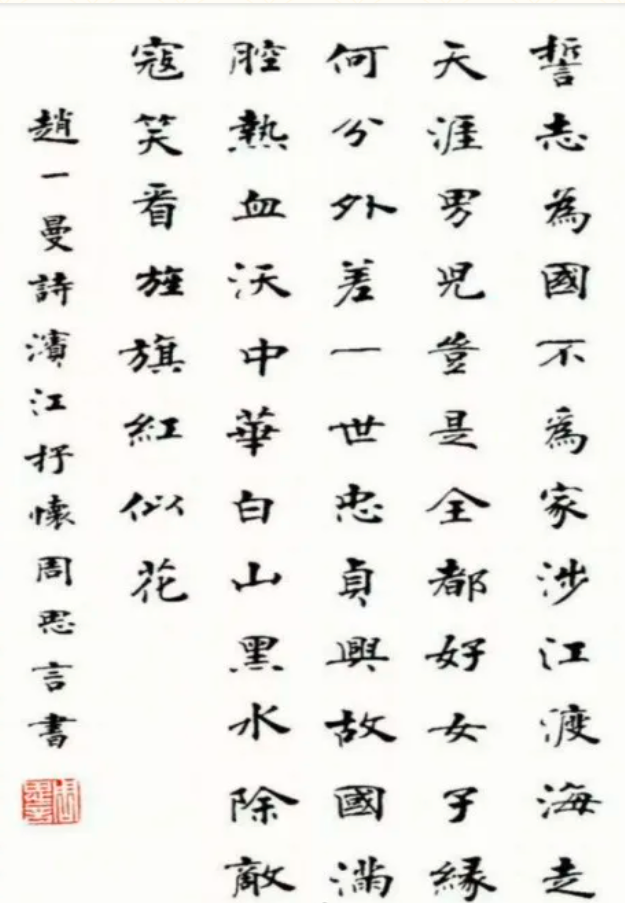 誓志為國不為家涉江渡海走
天涯男兒豈是全都好女子縁
何分外差一世忠貞興故國滿
腔熱血沃中華白山黑水除敵
寇笑看旌旗紅似花
趙一曼詩濱江抒懷周思言書